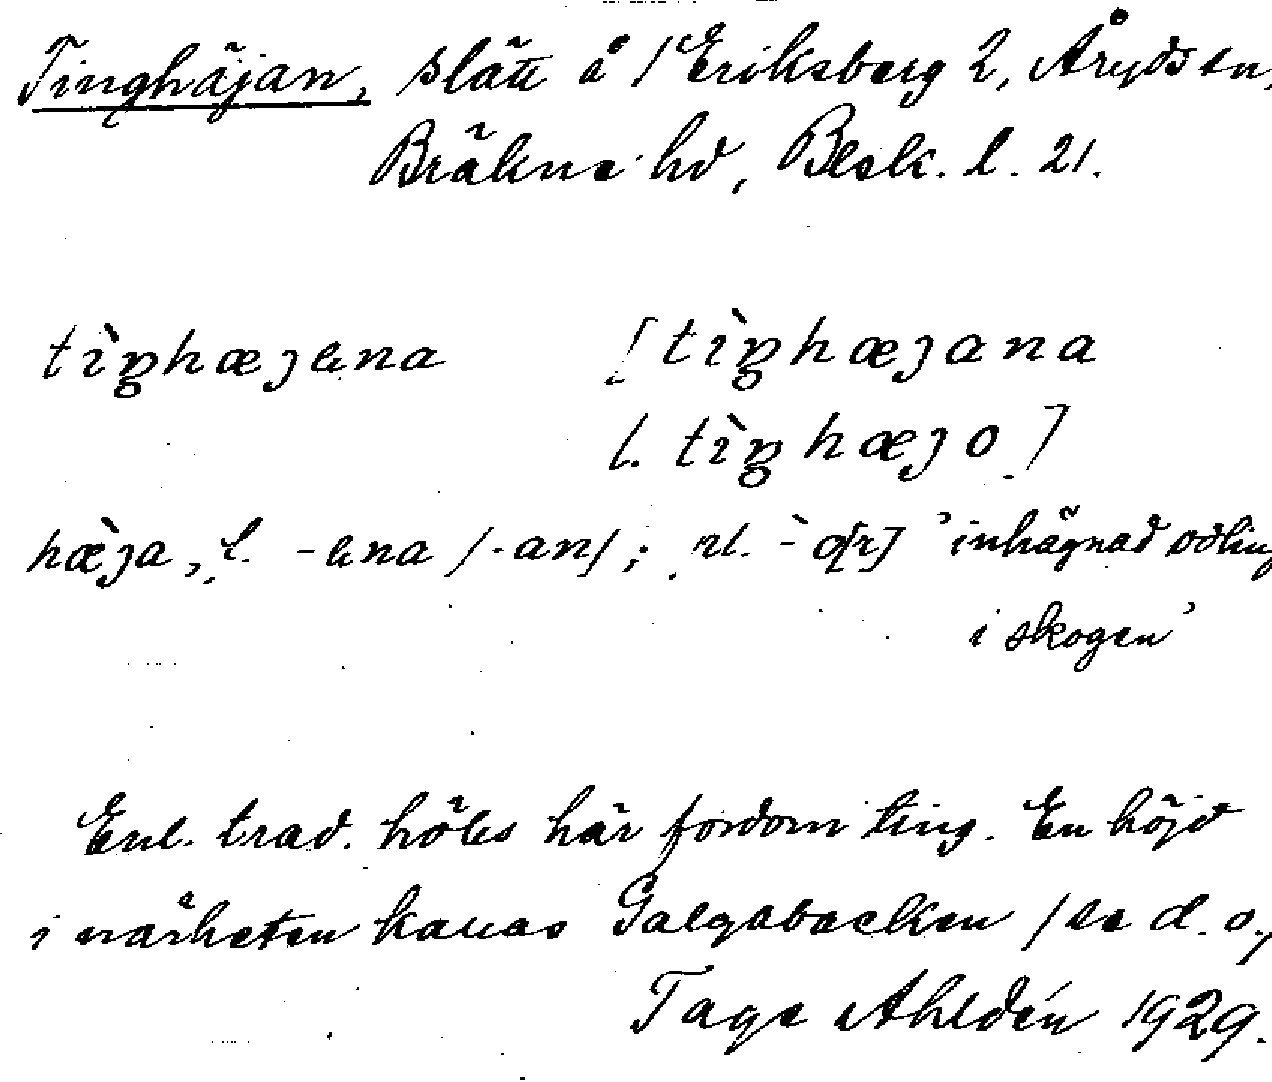 Tinghäjan, slätt å /Eriksberg 2, Åryds sn,
Bräkne hd, Blek. l. 21.
tìŋhæȷana [tìŋhæȷana
l. tìŋhæȷo]
hæ̀ȷa, f. -ana /-an/; pl. -̀ o[r] 'inhägnad odling
i skogen'
Enl. trad. hölls här fordom ting. En höjd
i närheten kallas Galgabacken /se d. o./
Tage Ahldén 1929.